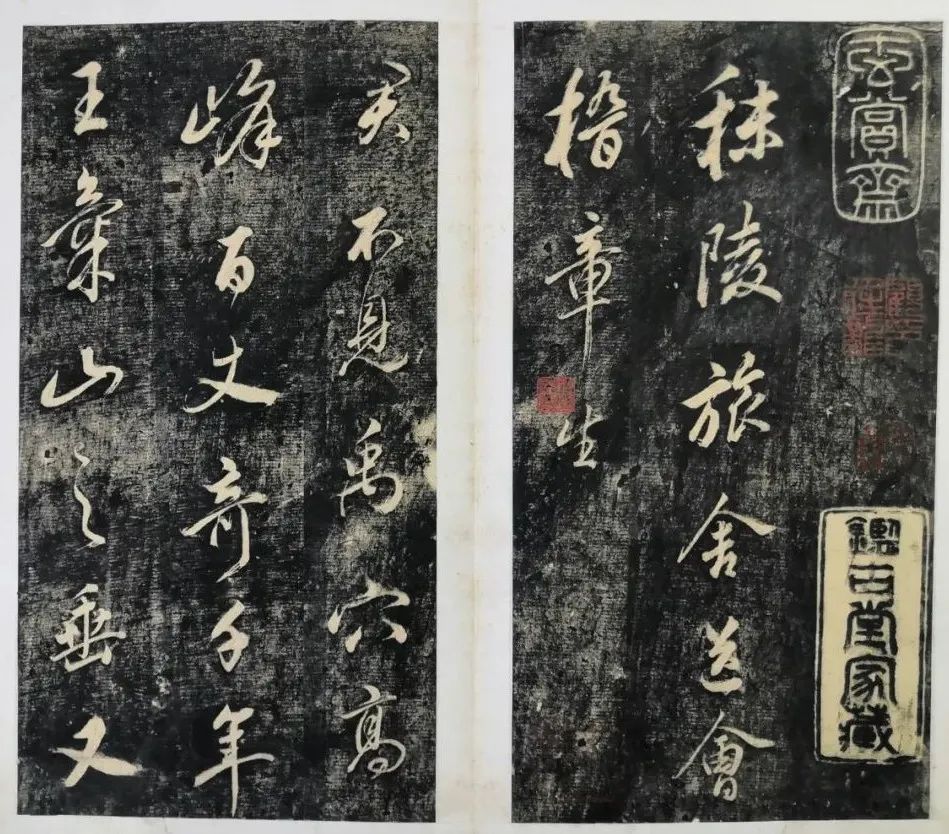 玄賞齋
鑑古堂家藏
秣陵旅舍送會
稽章生
君不見禹穴高
峰百丈奇千年
王氣山之垂又